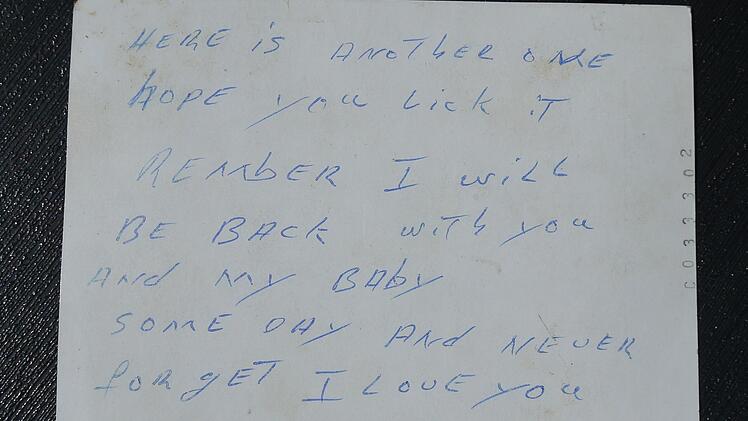 HERE is ANOTHER ONE
HOPE you Lick iT
REMbER I wiLL
BE BACK wiTh you
ANd My BAby
SOME DAY ANd NEVER
forgET I LOVE you
C033302